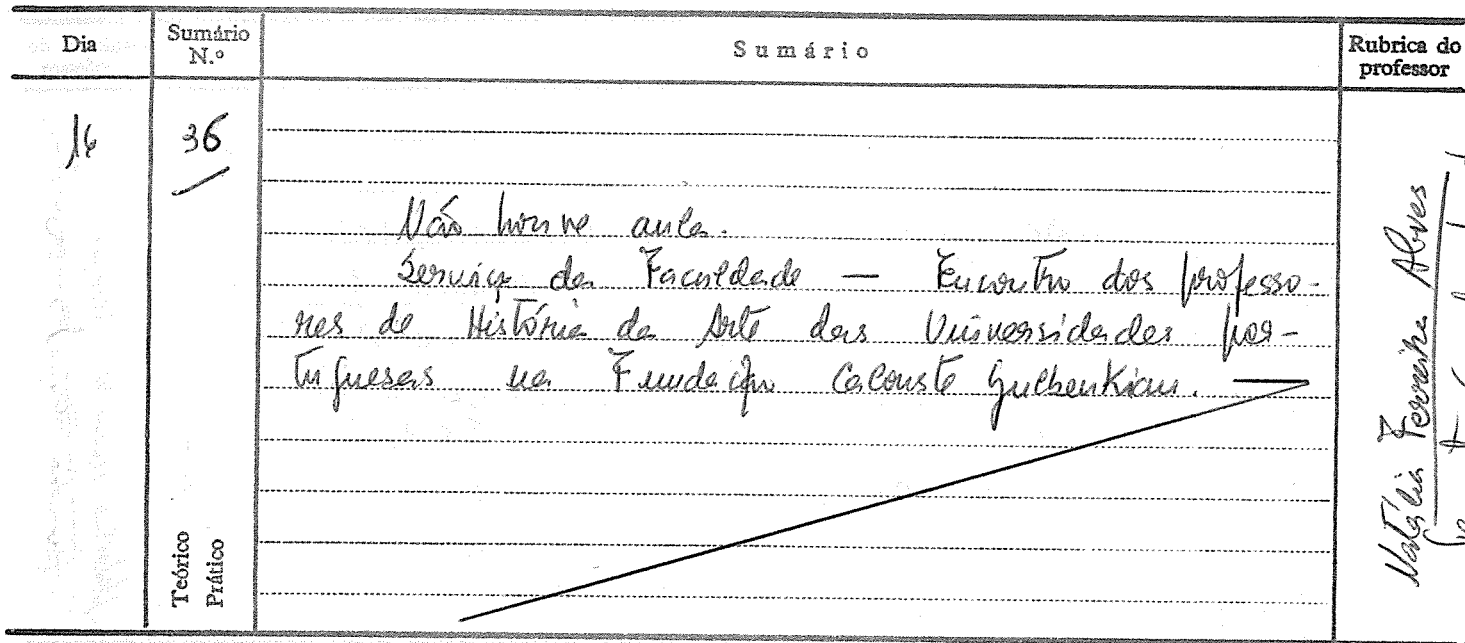 Dia
Sumário N.º
Sumário
Rubrica do professor
16
36
Não houve aula.
Serviço da Faculdade — Encontro dos professo-
res de História da Arte das Universidades por-
tuguesas na Fundação Calouste Gulbenkian.
Teórico
Prático
Natália Ferreira Alves